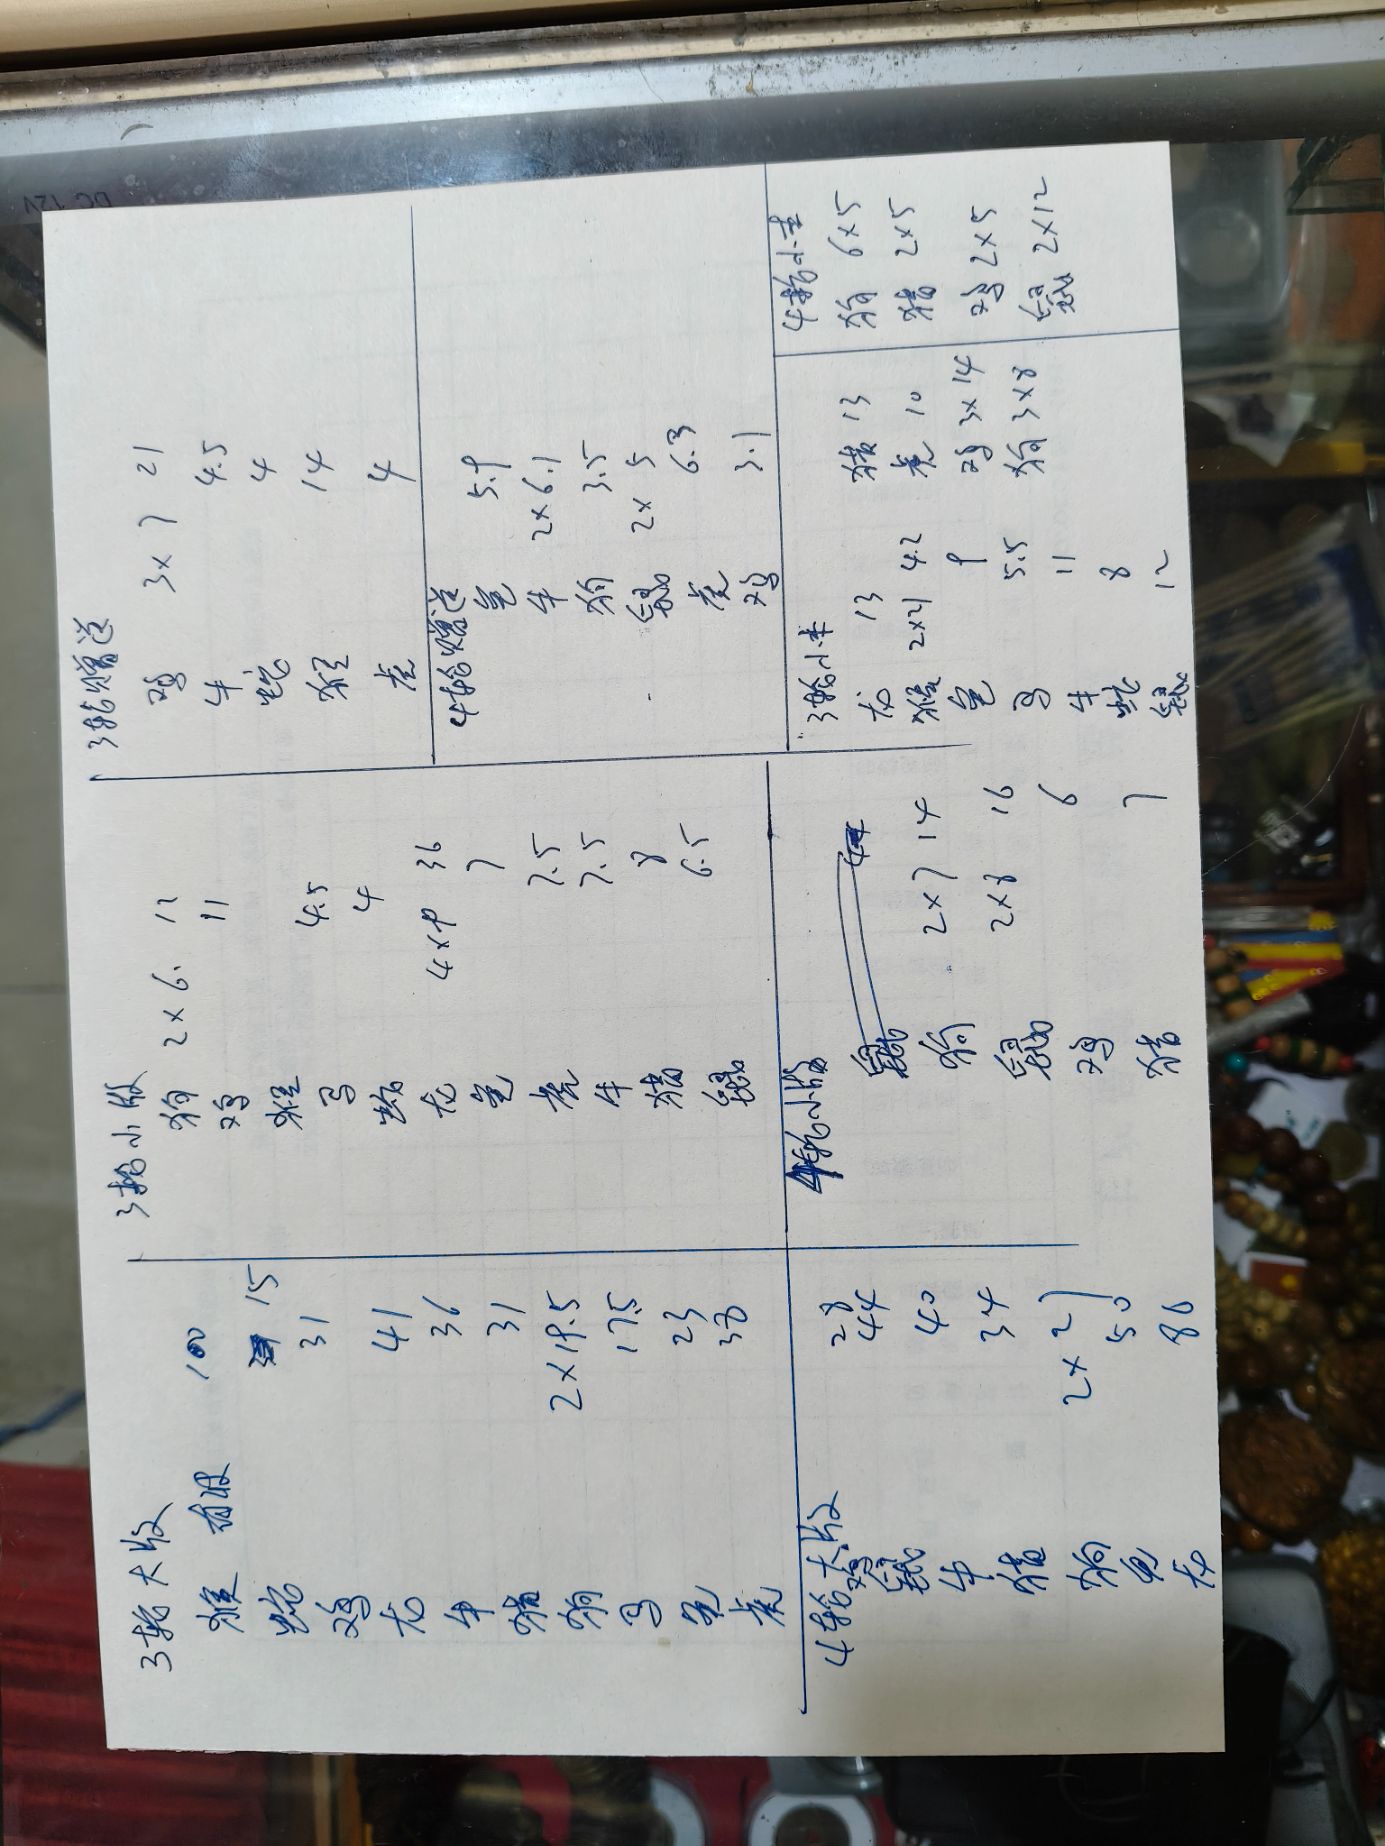 3轮大版
猴 招租 100
蛇 15
鸡 31
龙 41
牛 36
猪 31
狗 2×19.5
马 17.5
兔 23
虎 38
3轮小版
狗 2×6. 12
鸡 11
猴 4.5
马 4
蛇
龙 4×9 36
兔 7
虎 7.5
牛 7.5
猪 8
鼠 6.5
3轮赠送
鸡 3×7 21
牛 4.5
蛇 4
猴 14
虎 4
4轮赠送
兔 5.9
牛 2×6.1
狗 3.5
鼠 2×5
虎 6.3
鸡 3.1
4轮大版
鸡 28
鼠 44
牛 40
猪 34
狗 2×27
兔 50
龙 80
4轮小版
鼠 44
狗 2×7 14
鼠 2×8 16
鸡 6
猪 7
3轮小本
龙 13 猪 13
猴 2×21 42 虎 10
兔 9 鸡 3×14
马 5.5 狗 3×8
牛 11
蛇 8
鼠 12
4轮小本
狗 6×5
猪 2×5
鸡 2×5
鼠 2×12
DC 12V